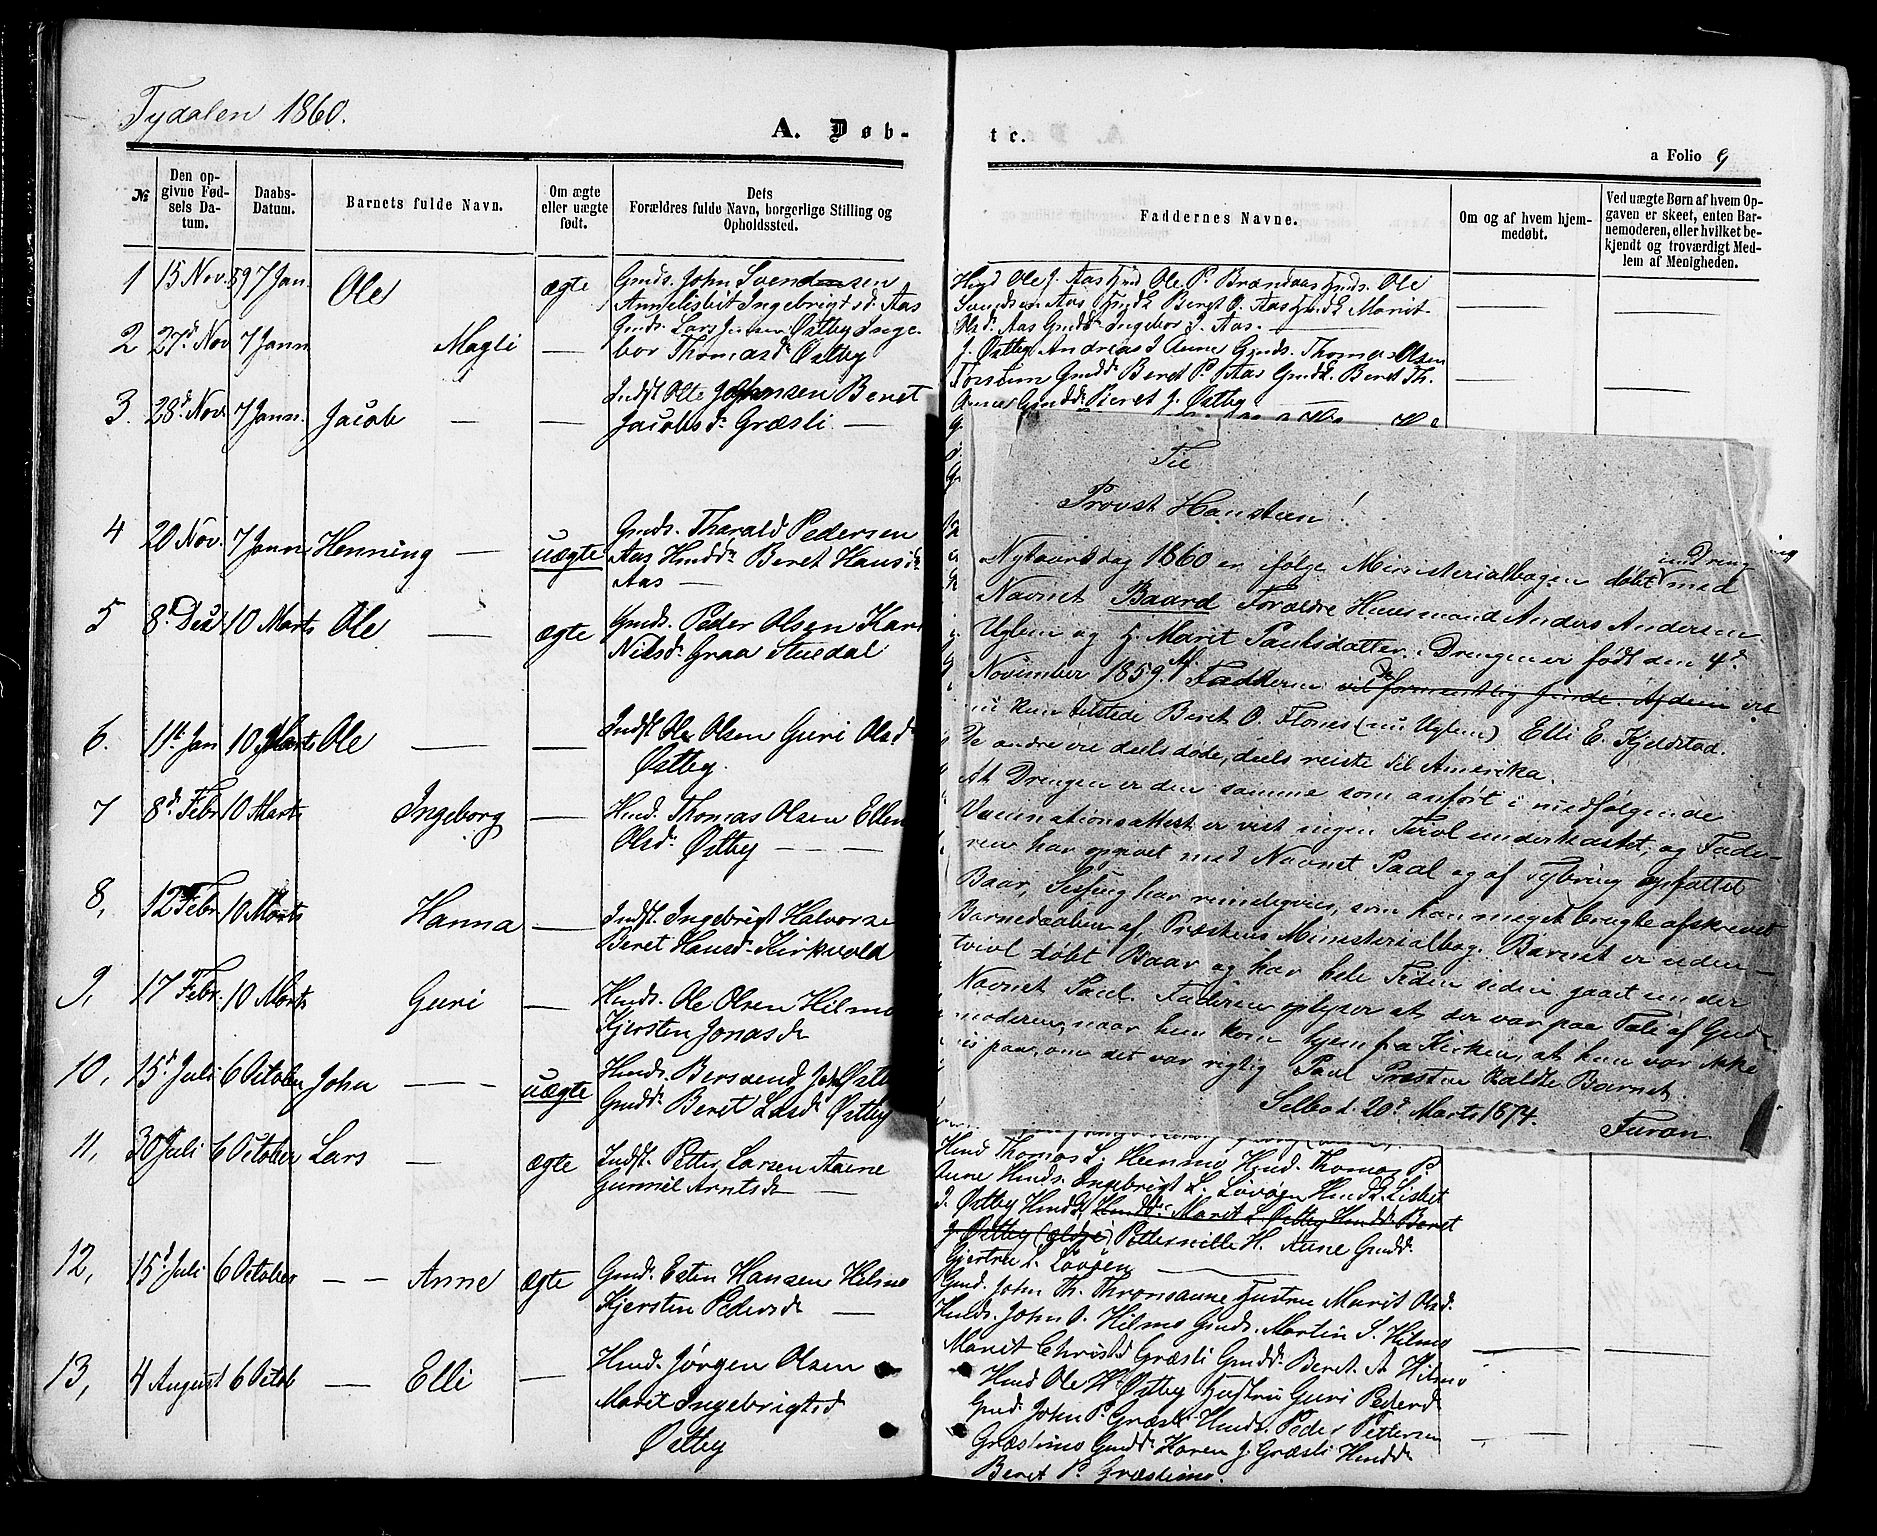 Tydalen 1860.
A. Døb-
№
Den opgivne Fødsels Datum.
Daabs-Datum.
Barnets fulde Navn.
Om ægte eller uægte født.
Dets Forældres fulde Navn, borgerlige Stilling og Opholdssted.
1 15 Nov. 59 7 Jan. Ole ægte Gmds. John Svendsen
Annelisbet Ingebrigtsd. Aas
2 27d Nov 7 Jann Magli — Gmds. Lars Jensen Østby Inge-
bor Thomasd. Østby
3. 28d Nov. 7 Jann. Jacob — — Indst Ole Johnsen Beret
Jacobsd. Græsli —
4 20 Nov. 7 Jann Henning — uægte Gmds. Tharald Pedersen
Aas Hmdd. Beret Hansd.
Aas —
5 8d Dec 10 Marts Ole — ægte Gmds. Peder Olsen Kari
Nilsd. Graa Stuedal
6. 11t Jan 10 Marts Ole — — Indst Ole Olsen Guri Olsd.
Østby.
7 8d Febr 10 Marts Ingeborg — Hmd. Thomas Olsen Ellen
Olsd. Østby — — —
8, 12 Febr. 10 Marts Hanna — Indst. Ingebrigt Halvorsen
Beret Hansd. Kirkvold
9, 17 Febr. 10 Marts Guri — Hmds. Ole Olsen Hilmo
Kjersten Jonasd.
10, 15d Juli 6 October John — uægte Hmds. Bersvend Østby
Gmdd. Beret Larsd. Østby
11, 30 Juli 6 October Lars — ægte Indst. Petter Larsen Aune
Gunnil Arntsd. —
12, 15d Juli 6 October — — Anne ægte Gmd. Esten Hansen Hilmo
Kjersten Pedersd. —
13, 4 August 6 Octob — Elli — Hmd. Jørgen Olsen
Marit Ingebrigtsd
Østby
te.
a Folio 9
Faddernes Navne.
Om og af hvem hjemmedøbt.
Ved uægte Børn af hvem Opgaven er skeet, enten Barnemoderen, eller hvilket bekjendt og troværdigt Medlem af Menigheden.
Hmd Ole J. Aas Hmd Ole P. Brændaas Gmds. Ole
Svendsen Aas Hmdk Beret O. Aas Gmdk Marit
Olsd. Aas Gmdd. Ingebor J. Aas. —
J. Østby Andreas J Aune Gmds. Thomas Olsen
Torstun Gmdd. Beret P. Aas Gmdk. Beret Th.
Aunes Gmdd. Beret J. Østby
Til
Provst Hanssteen!
Nytaarsdag 1860 er ifølge Ministerialbogen døbt en Dreng med
Navnet Baard Forældre Huusmand Anders Andersen
Uglem og H. Marit Paulsdatter. Drengen er født den 4de
November 1859. Af Fadderne vil formentlig finde. Af dem er
nu kun tilstede Beret O. Flones (nu Uglem) Elli E. Kjeldstad.
De andre ere deels døde, deels reiste til Amerika.
At Drengen er den samme som anført i medfølgende
Vaccinationsattest er vist ingen Tvivl underkastet, og Fade-
ren har opgivet med Navnet Paal og af Tybring opfattet
Baar, Sesseng har rimeligviis, som han meget brugte afskrevet
Barnedaaben af Præstens Ministerialbog. Barnet er uden-
tvivl døbt Baar og har hele Tiden siden gaaet under
Navnet Paul. Faderen oplyser at der var paa Tale af Gud-
moderen, naar hun kom hjem fra Kirken, at hun var ikke
vis paa, om det var rigtig Paul Præsten kaldte Barnet.
Selbo d. 20de Marts 1874.
Furan
Hmd Thomas L. Hemmo Hmd. Thomas P.
Aune Hmds. Ingebrigt L. Løvøen Hmdk Lisbet
J. Østby Hmdk Hmdd. Marit L Østby Hmdd. Beret
J. Østby Petternille H. Aune Gmdd.
Gjertru L. Løvøen —
Gmd. John Th. Thronsaune Hustru Marit Olsd.
Hmds. John O. Hilmo Gmds. Martin S. Hilmo
Marit Christd Græsli Gmdd. Beret A Hilmo
Hmd Ole H Østby Hustru Guri Pedersd
Gmd. John P. Græsli Hmds. Peder Pettersen
Græslimo Gmdd. Karen J. Græsli Hmdd.
Beret P. Græslimo.